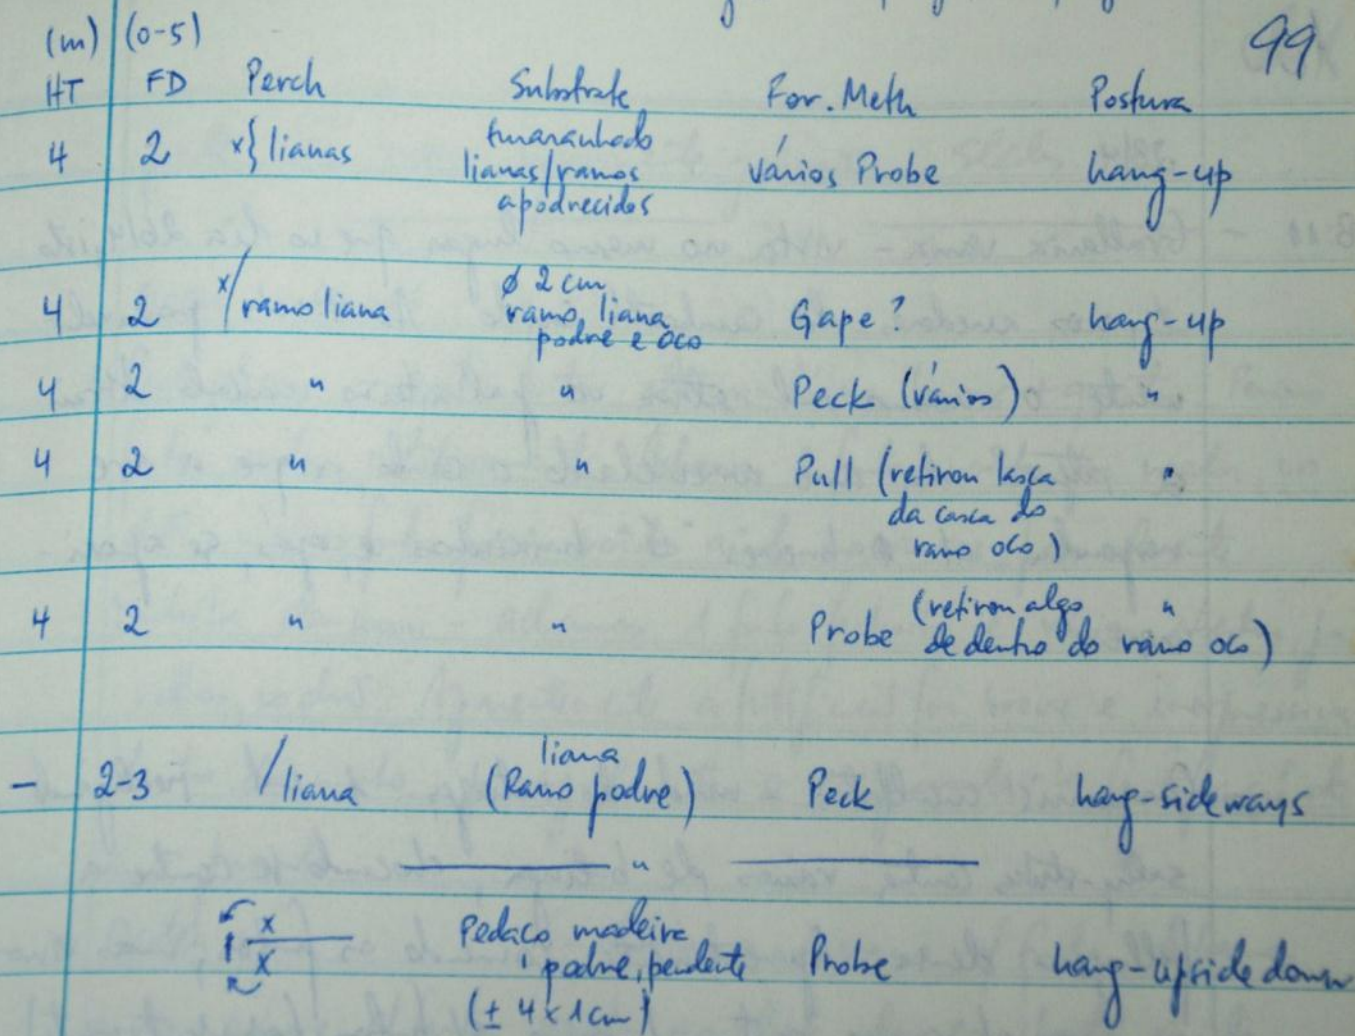 99
(m) (0-5)
HT FD Perch Substrate For. Meth Postura
4 2 x} lianas emaranhado lianas/ramos apodrecidos vários Probe hang-up
4 2 x/ ramo liana ø 2 cm ramo, liana podre e oco Gape? hang-up
4 2 " " Peck (vários) "
4 2 " " Pull (retirou lasca da casca do ramo oco) "
4 2 " " Probe (retirou algo de dentro do ramo oco) "
- 2-3 / liana liana (Ramo podre) Peck hang-sideways
"
x
x
Pedaço madeira podre, pendente (± 4x1cm) Probe hang-upside down